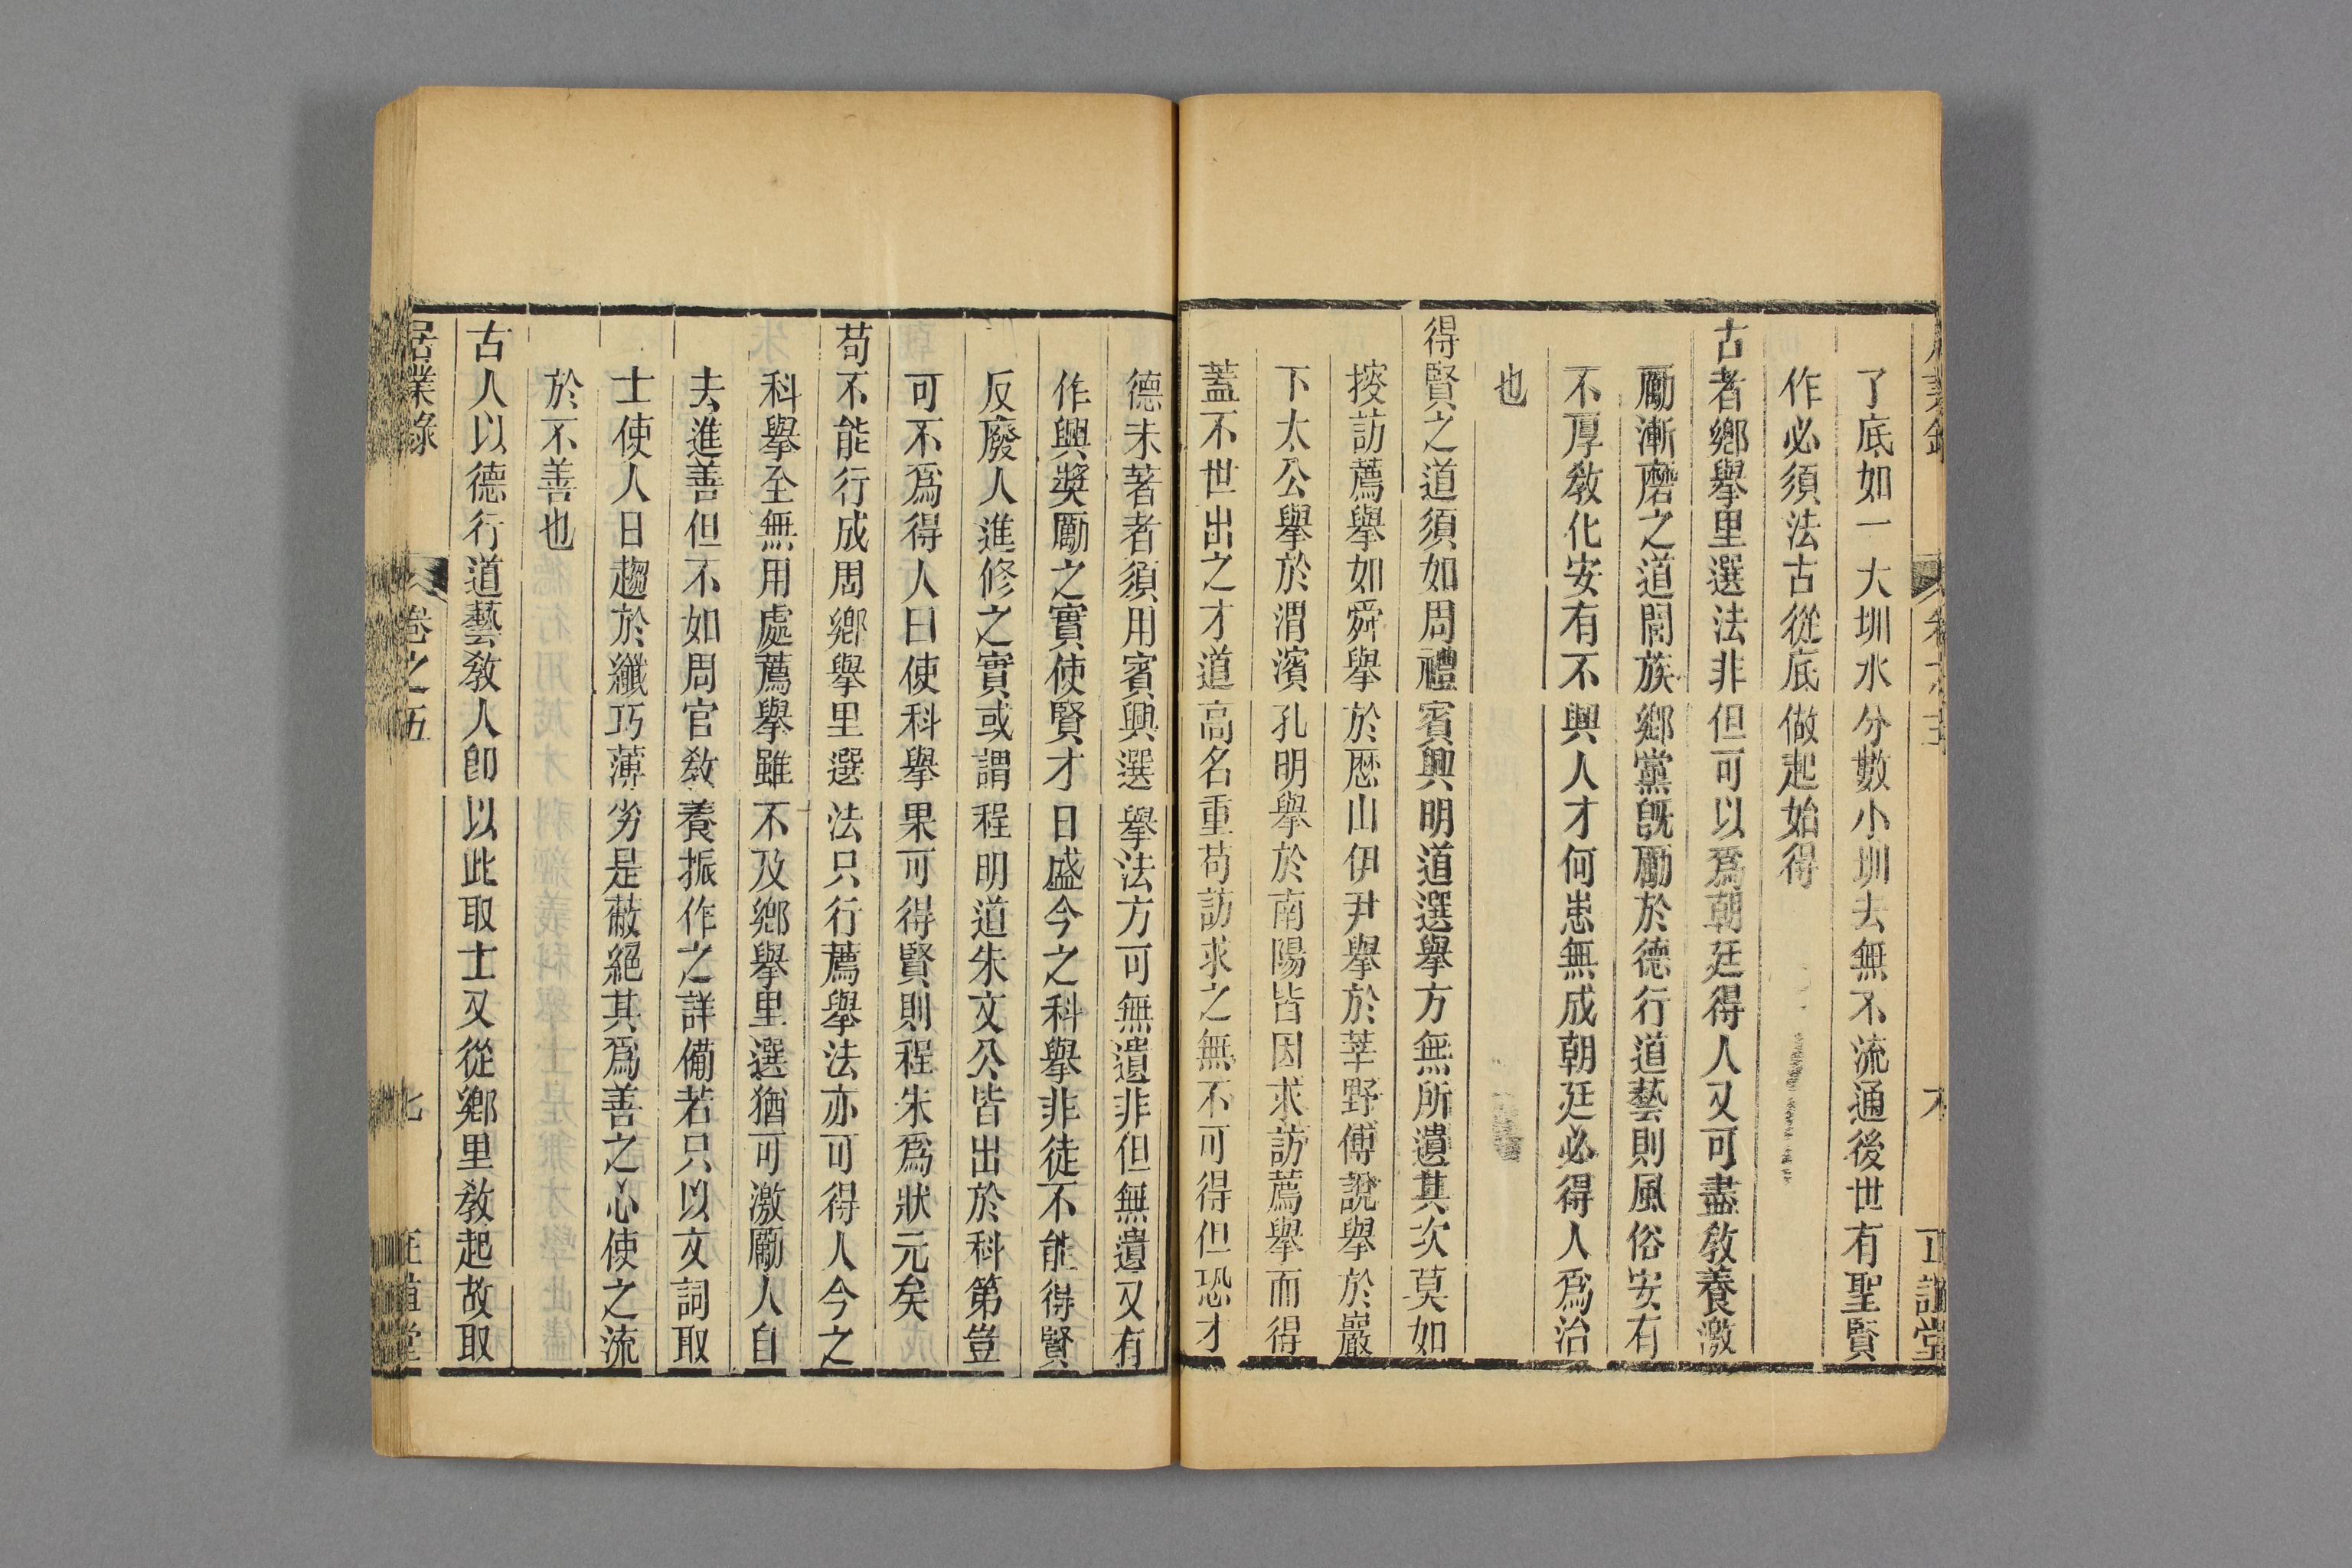 了底如一大圳水分數小圳去無不流通後世有聖賢
作必須法古從底做起始得
古者鄉舉里選法非但可以爲朝廷得人又可盡敎養激
勵漸磨之道閭族鄉黨旣勵於德行道藝則風俗安有
不厚敎化安有不興人才何患無成朝廷必得人爲治
也
得賢之道須如周禮賓興明道選舉方無所遺其次莫如
搜訪薦舉如舜舉於歷山伊尹舉於莘野傅說舉於巖
下太公舉於渭濱孔明舉於南陽皆因求訪薦舉而得
蓋不世出之才道高名重苟訪求之無不可得但恐才
德未著者須用賓興選舉法方可無遺非但無遺又有
作興奬勵之實使賢才日盛今之科舉非徒不能得賢
反廢人進修之實或謂程明道朱文公皆出於科第豈
可不爲得人曰使科舉果可得賢則程朱爲狀元矣
苟不能行成周鄉舉里選法只行薦舉法亦可得人今之
科舉全無用處薦舉雖不及鄉舉里選猶可激勵人自
去進善但不如周官敎養振作之詳備若只以文詞取
士使人日趨於纖巧薄劣是蔽絕其爲善之心使之流
於不善也
古人以德行道藝敎人卽以此取士又從鄉里敎起故取
居業錄 卷之五 七 正誼堂